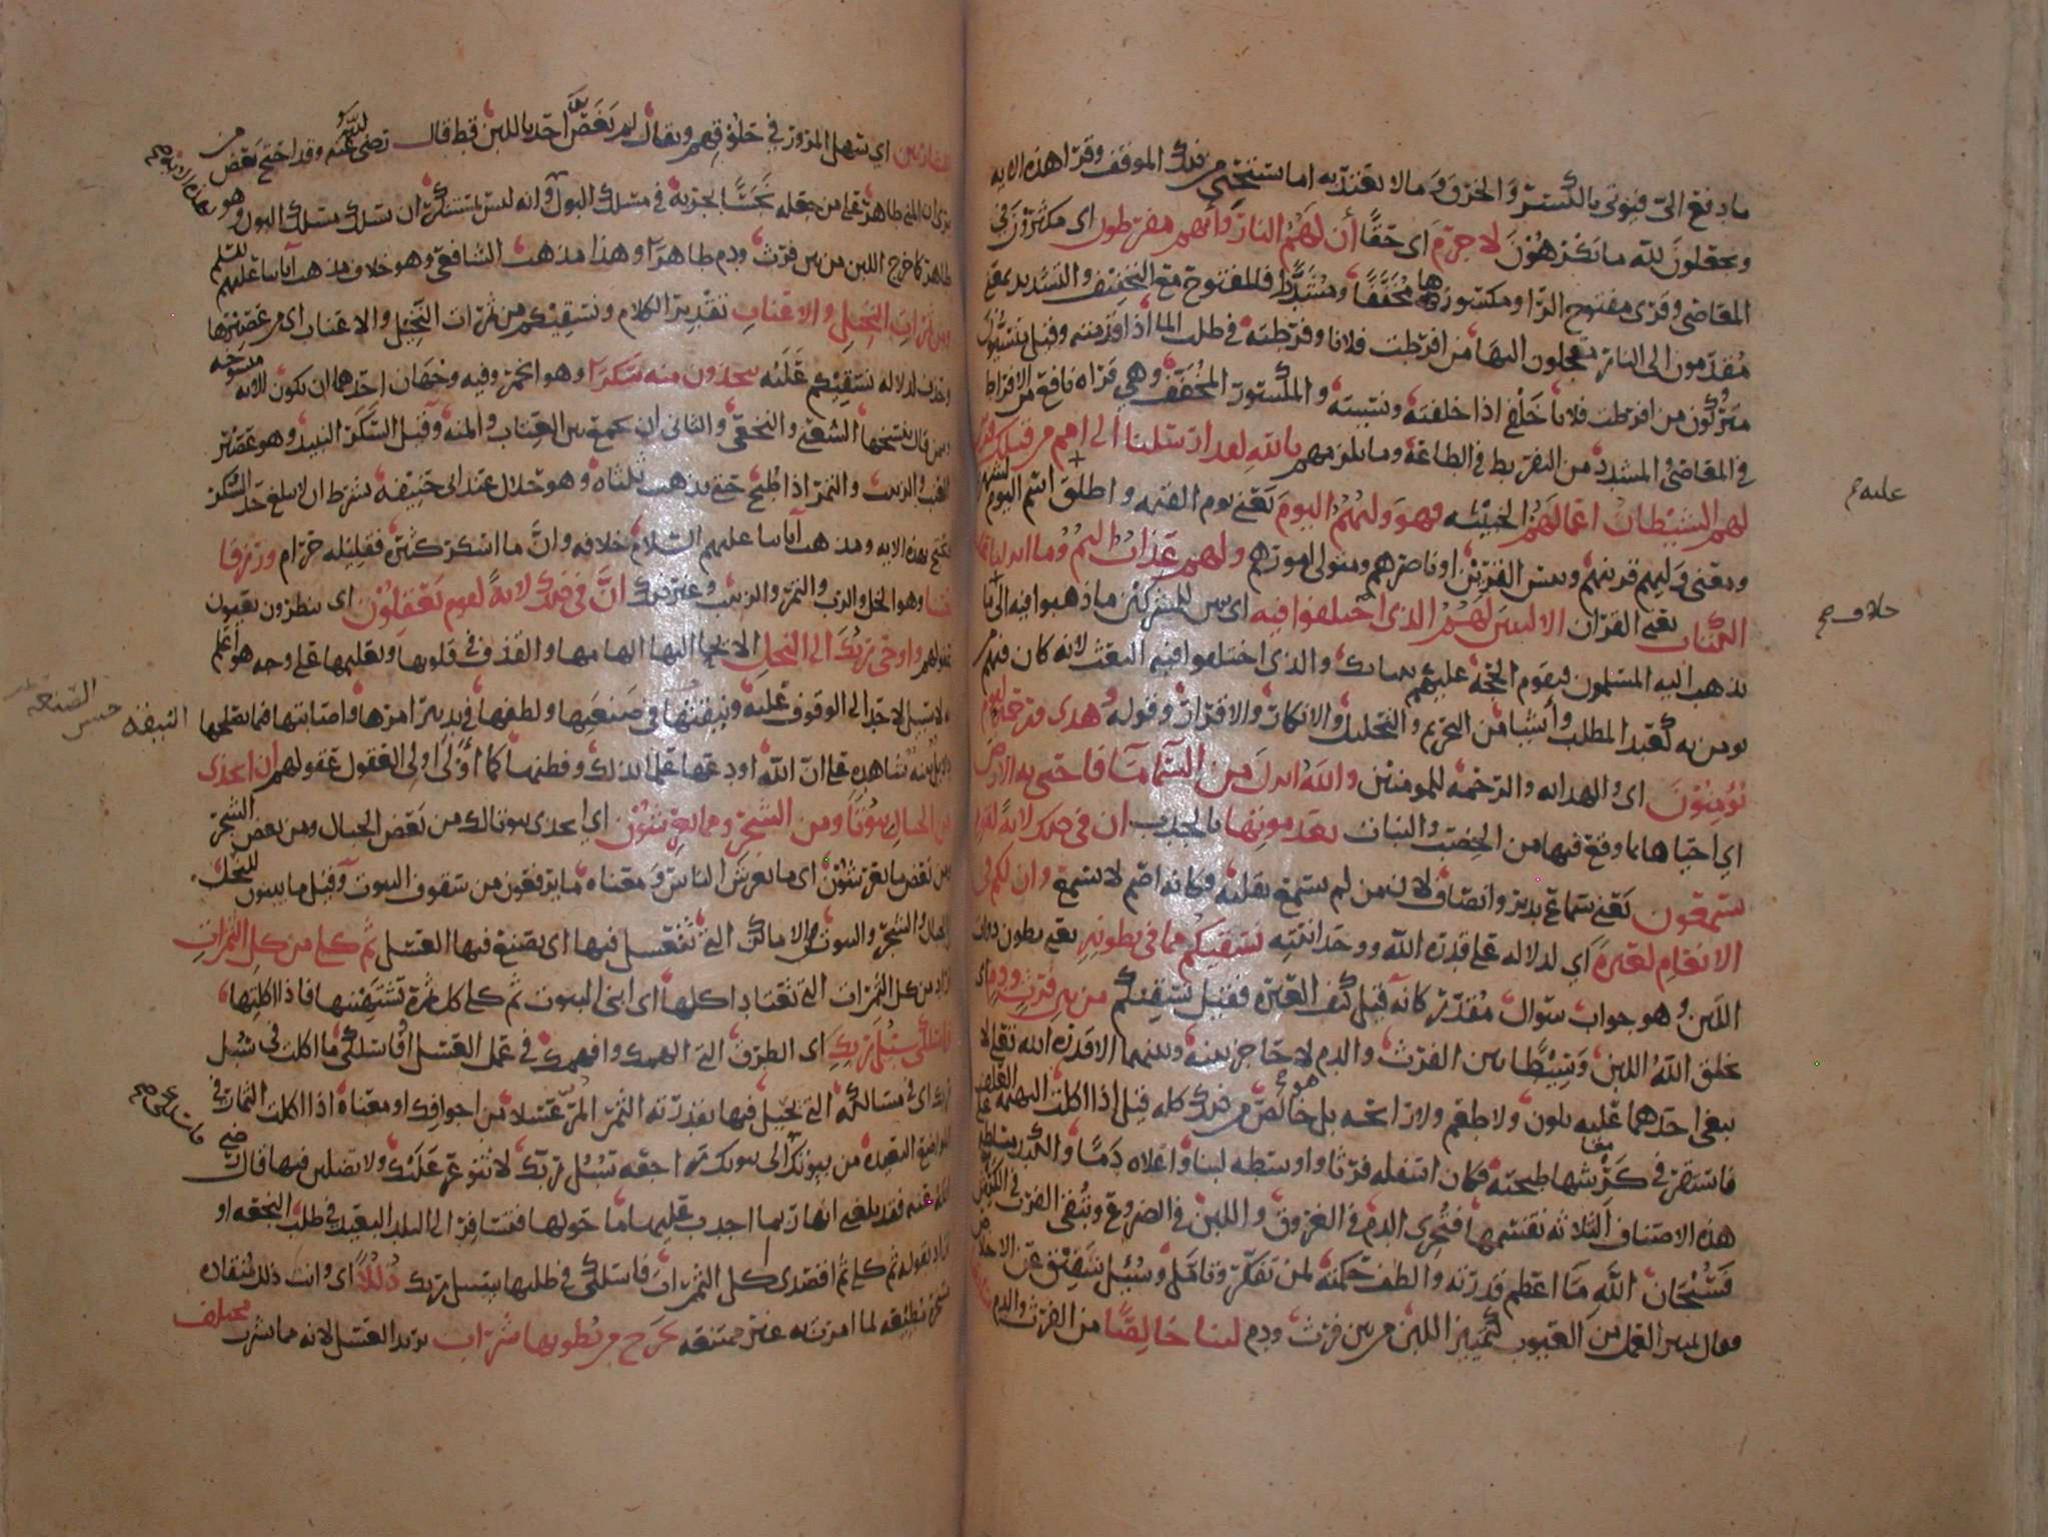 ما دفع الي فيوتى بالكسر والخرق وما لا يعتد به اما تستحي من ذلك الموقف وقرا هذه الايه
ويجعلون لله ما يكرهون لا جرم اى حقا أن لهم النار وأنهم مفرطون اى مكثرون في
المعاصي وقرى مفتوح الرا ومكسورها مخففا ومشددا فالمفتوح مع التخفيف والتشديد يعني
مقدمون الى النار معجلون اليها من افرطت فلانا وفرطته في طلب الما اذا قدمته وقيل منسيون
متركون من افرطت فلانا خلفي اذا خلفته ونسيته والمكسور المخفف وهي قراه نافع من الافراط
في المعاصي والمشدد من التفريط في الطاعة وما يلزمهم تالله لقد ارسلنا الى امم من قبلك فزين
لهم الشيطان اعمالهم الخبيثه فهو وليهم اليوم يعني يوم القيمه واطلق اسم اليوم
ومعنى وليهم قرينهم وبيس القرين او ناصرهم ومتولى امورهم ولهم عذاب اليم وما انزلنا عليك
الكتاب يعني القران الا لتبين لهم الذي اختلفوا فيه اى يبين للمشركين ما ذهبوا فيه الى ما
يذهب اليه المسلمون فيقوم الحجة عليهم ببيانك والذي اختلفوا فيه البعث لانه كان فيهم
يومن به كعبد المطلب وأشيا من التحريم والتحليل والانكار والاقرار وقوله وهدى ورحمة لقوم
يؤمنون اى والهدايه والرحمة للمومنين والله انزل من السما ما فاحيى به الارض
اي احياها بما وقع فيها من الخصب والنبات بعد موتها بالجدب ان في ذلك لاية لقوم
يسمعون يعني سماع تدبر وانصاف لان من لم يسمع بقلبه فكانه اصم لا يسمع وان لكم في
الانعام لعبرة اي لدلاله على قدره الله ووحدانيته نسقيكم مما في بطونه يعني بطون ذوات
اللبن وهو جواب سوال مقدر كانه قيل كيف العبرة فقيل نسقيكم من بين فرث ودم اى
يخلق الله اللبن وسيطا بين الفرث والدم لا حاجز بينه وبينهما الا قدرة الله تعالى لا
يبغى احدهما عليه بلون ولا طعم ولا رائحه بل هو خالص من ذلك كله قيل اذا اكلت البهيمة العلف
فاستقر في كرشها طبخته فكان اسفله فرثا واوسطه لبنا واعلاه دما والكبد مسلطة على
هذه الاصناف الثلاثه تقسمها فتجرى الدم في العروق واللبن في الضروع وتبقى الفرث في الكرش
فسبحان الله ما اعظم قدرته والطف حكمته لمن تفكر وتامل وسئل شقيق عن الاخلاص
فقال تمييز العمل من العيوب كتمييز اللبن من بين فرث ودم لبنا خالصا من الفرث والدم
عليه
خلاف
للشاربين اي سهل المرور في حلوقهم ويقال لم يغص احد باللبن قط قال رضى الله عنه وقد احتج بعض من
يرى ان المني طاهر على من جعله نجسا لجريه في مسلك البول وانه ليس بمستنكر ان سلك مسلك البول وهو
طاهر كما خرج اللبن من بين فرث ودم طاهرا وهذا مذهب الشافعي وهو خلاف مذهب آباينا عليهم السلم
ومن ثمرات النخيل والاعناب تقدير الكلام ونسقيكم من ثمرات النخيل والاعناب اى من عصيرها
وحذف لدلاله نسقيكم عليه تتخذون منه سكرا وهو الخمر وفيه وجهان احدهما ان يكون الايه منسوخه
وممن قال بنسخها الشعبي والنخعي والثاني ان يجمع بين العتاب والمنه وقيل السكر النبيذ وهو عصير
العنب والزبيب والتمر اذا طبخ حتى يذهب ثلثاه وهو حلال عند ابى حنيفه بشرط ان لا يبلغ حد السكر
يحتج بهذه الايه ومذهب آباينا عليهم السلام خلافه وان ما اسكر كثيره فقليله حرام ورزقا
حسنا وهو الخل والرب والتمر والزبيب وغير ذلك ان في ذلك لاية لقوم يعقلون اى ينظرون بعيون
عقولهم واوحى ربك الى النحل الايحا اليها الهامها والقذف في قلوبها وتعليمها على وجه هو اعلم
به لا سبيل لاحد الى الوقوف عليه ونيقتها في صنعتها ولطفها في تدبير امرها واصابتها فيما يصلحها
دلايل بينه شاهدة على ان الله اودعها علما بذلك وفطنها كما أولى اولى العقول عقولهم ان اتخذى
من الجبال بيوتا ومن الشجر ومما يعرشون اي اتخذى بيوتا لك من بعض الجبال ومن بعض الشجر
ومن بعض ما يعرشون اى ما يعرش الناس ومعناه ما يرفعون من سقوف البيوت وقيل ما يبنون للنحل
في الجبال والشجر والبيوت والاماكن التي تعسل فيها اى تصنع فيها العسل ثم كلى من كل الثمرات
اراد من كل الثمرات التي تعتاد اكلها اى ابنى البيوت ثم كلى كل ثمرة تشتهينها فاذا اكلتها
فاسلكى سبل ربك اى الطرق التي الهمك وافهمك في عمل العسل او فاسلكى ما اكلت في سبل
ربك اى في مسالكه التي يحيل فيها بقدرته الثمر المر عسلا من اجوافك او معناه اذا اكلت الثمار في
المواضع البعيدة من بيوتك الى بيوتك راجعه سبل ربك لا تتوعر عليك ولا تضلين فيها قال رضي
الله عنه فقد بلغني انها ربما اجدب عليها ما حولها فتسافر الى البلد البعيد في طلب النجعه او
اراد بقوله ثم كلى ثم اقصدى اكل الثمرات فاسلكى في طلبها سبل ربك ذللا اى وانت ذلل منقادة
مسخرة مطيعه لما امرت به غير ممتنعه يخرج من بطونها شراب يريد العسل لانه مما يشرب مختلف
النيقه حسن الصنعه